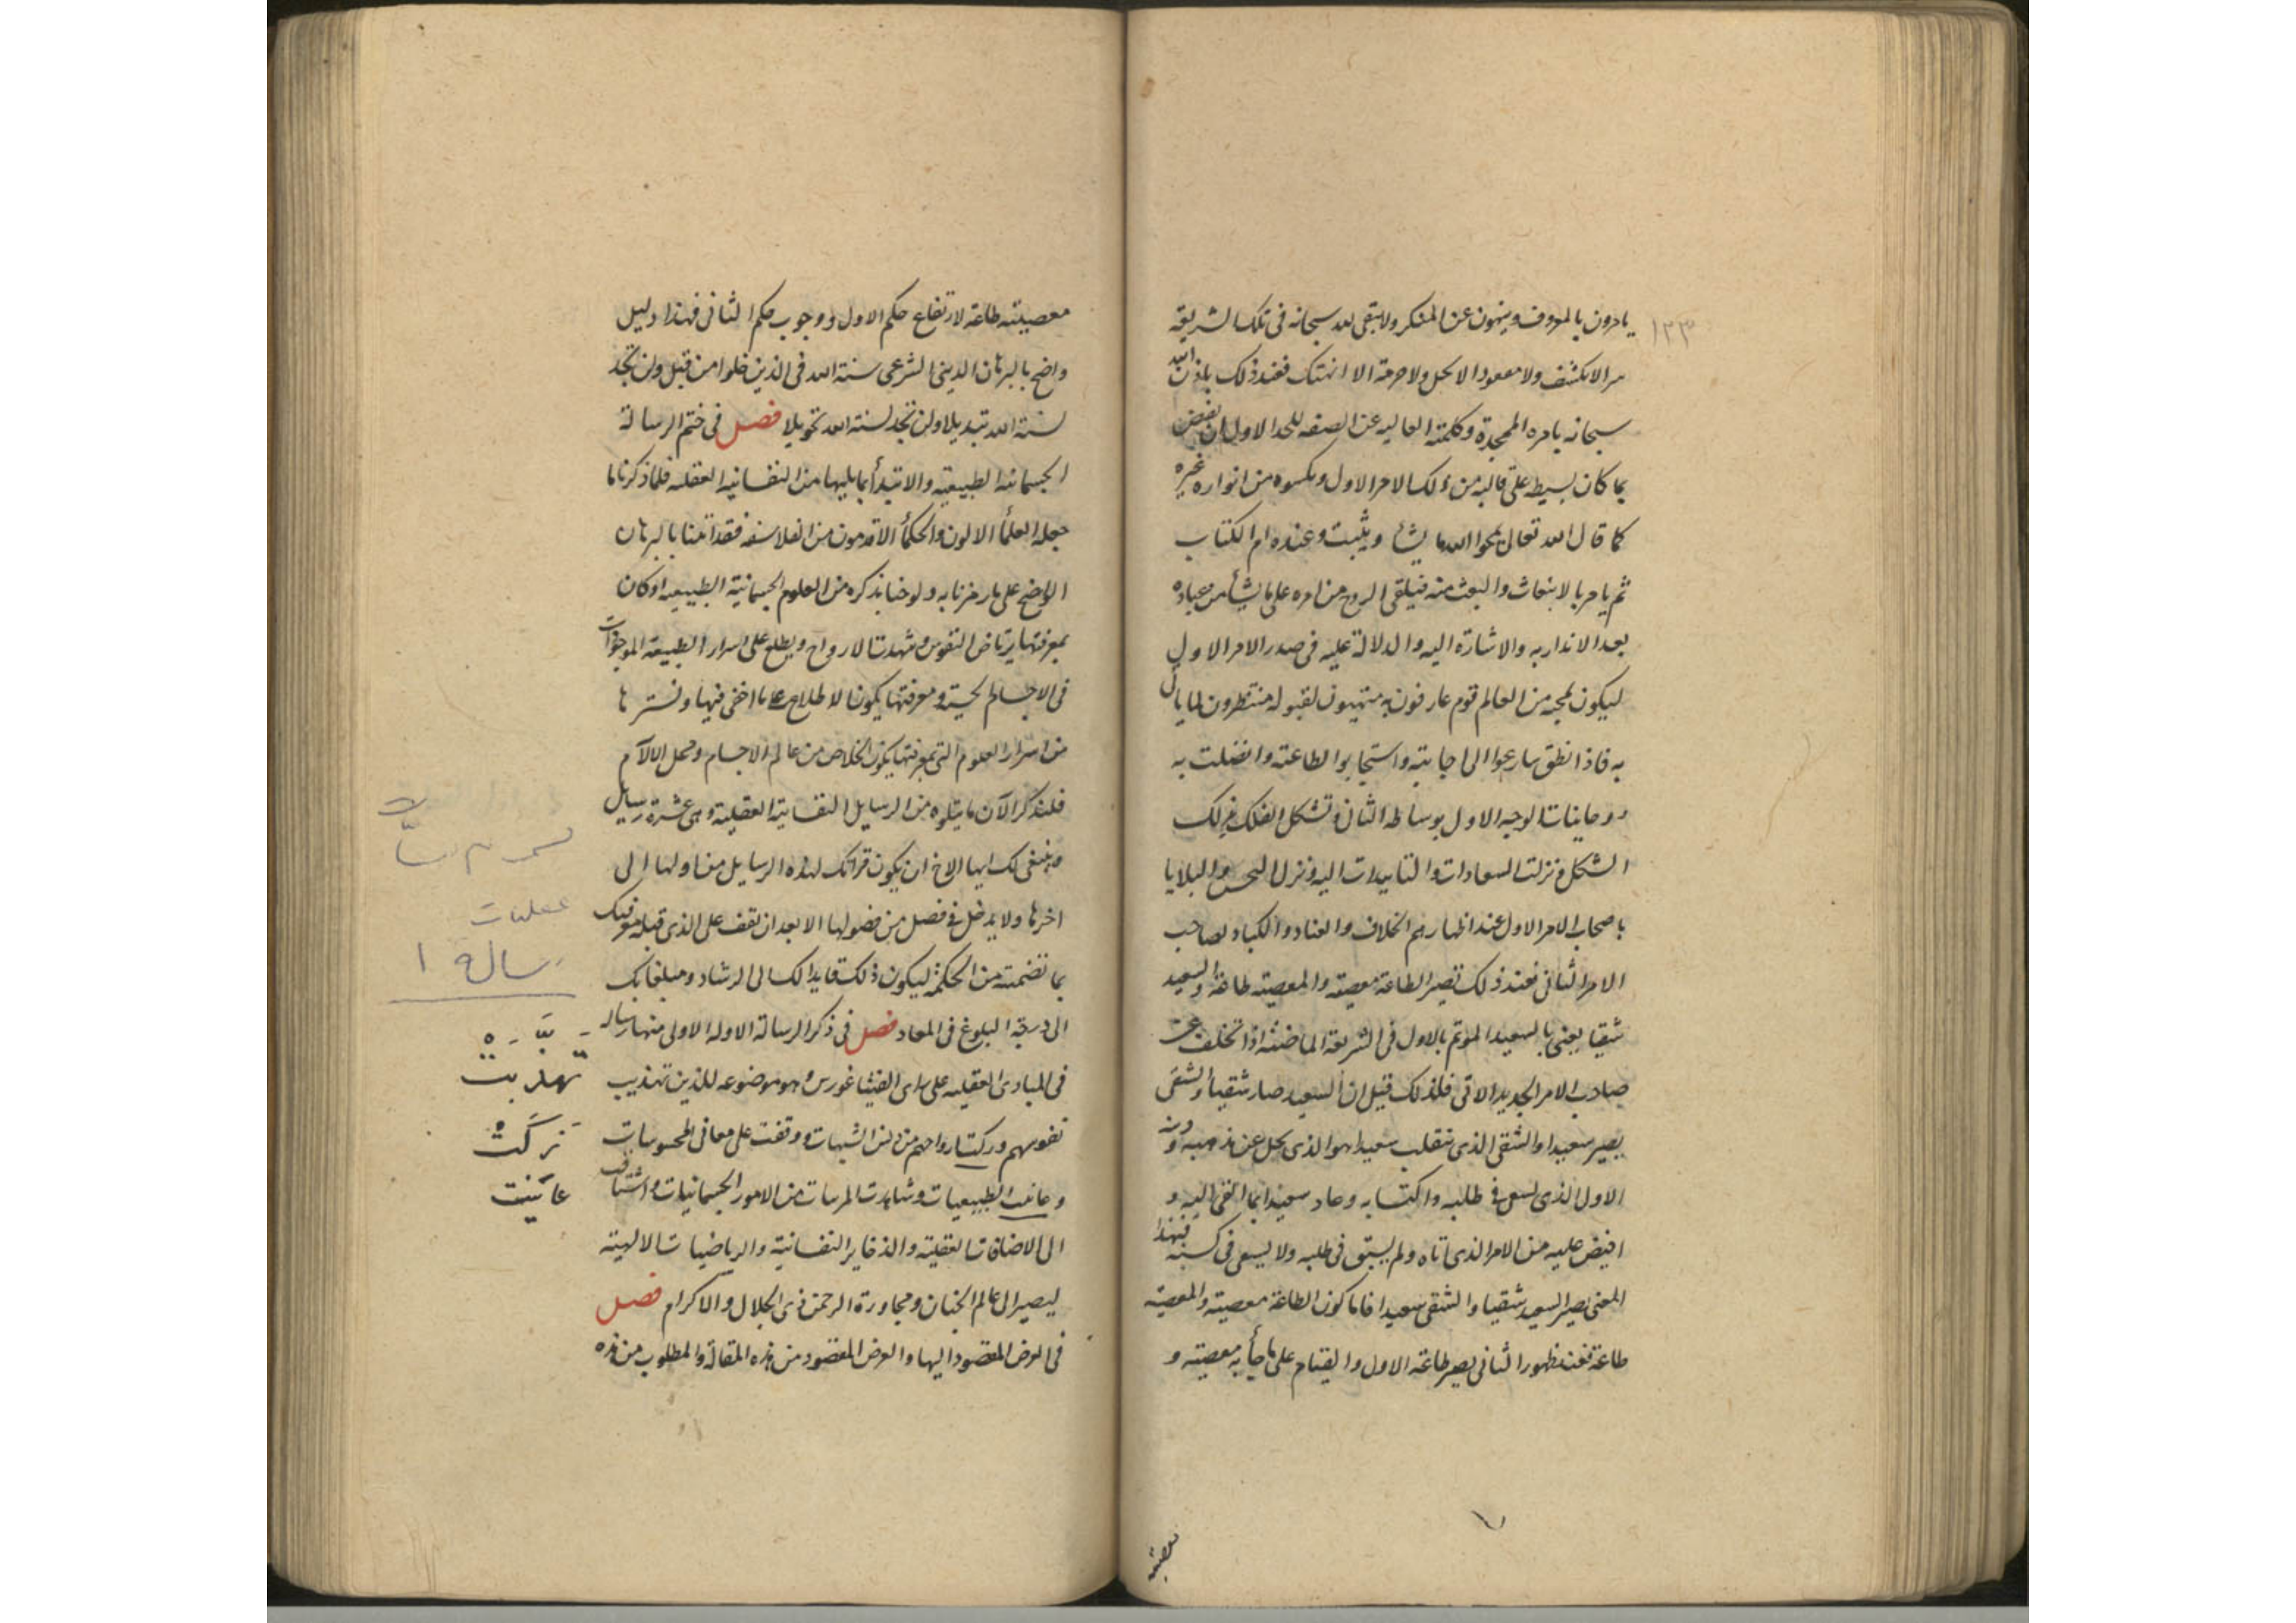 ١٢٣
يامرون بالمعروف وينهون عن المنكر ولا يبقى لله سبحانه فى تلك الشريعة
سر الا كشف ولا معقود الا حل ولا حرمة الا انهتك فعند ذلك ياذن الله
سبحانه بامره الممجدة وكلمته العاليه عن الصفه للحد الاول ان يفيض
بما كان بسيطه على قالبه من ذلك الامر الاول ويكسوه من انواره غيره
كما قال الله تعالى يمحوا الله ما يشا ويثبت وعنده ام الكتاب
ثم يامر بالانبعاث والبعث منه فيلقى الروح من امره على من يشأ من عباده
بعد الانذار به والاشارة اليه والدلالة عليه فى صدر الامر الاول
ليكون لمجيه من العالم قوم عارفون به متهيون لقبوله منتظرون لما ياتى
به فاذا نطق سارعوا الى اجابته واستجابوا لطاعته واتصلت به
روحانيات الوجه الاول بوساطة الثانى وتشكل الفلك بذلك
الشكل ونزلت السعادات والتاييدات اليه ونزل النحس والبلايا
باصحاب الامر الاول عند اظهارهم الخلاف والعناد والكياد لصاحب
الامر الثانى فعند ذلك تصير الطاعة معصية والمعصية طاعة والسعيد
شقيا يعنى بالسعيد الموتم بالاول فى الشريعة الماضية اذا تخلف عن
صاحب الامر الجديد الاتى فلذلك قيل ان السعيد صار شقيا والشقى
يصير سعيدا والشقى الذى ينقلب سعيدا هو الذى يحل عن مذهبه ودينه
الاول الذى يسعى فى طلبه واكتسابه وعاد سعيدا بما القى اليه و
افيض عليه من الامر الذى اتاه ولم يسبق فى طلبه ولا يسعى فى كسبه فبهذا
المعنى يصير السعيد شقيا والشقى سعيدا فاما كون الطاعة معصية والمعصية
طاعة فعند ظهور الثانى يصير طاعة الاول والقيام على ما جأ به معصية و
معصيته
معصيته طاعة لارتفاع حكم الاول ووجوب حكم الثانى فهذا دليل
واضح بالبرهان الدينى الشرعى سنة الله فى الذين خلوا من قبل ولن تجد
لسنة الله تبديلا ولن تجد لسنة الله تحويلا فصل فى ختم الرسالة
الجسمانية الطبيعية والابتدأ بما يليها من النفسانية العقلية فلما ذكرنا ما
جعله العلمأ الاولون والحكمأ الاقدمون من الفلاسفه فقد اتينا بالبرهان
الواضح على ما رمزنا به ولوحنا بذكره من العلوم الجسمانية الطبيعيه اذ كان
بمعرفتها يرتاض النفوس وتهدت الارواح ويطلع على اسرار الطبيعة الموجودات
فى الاجسام الحسية ومعرفتها يكون الاطلاع على ما اخفى فيها واستتر بها
من اسرار العلوم التى بمعرفتها يكون الخلاص من عالم الاجسام ومحل الآلام
فلنذكر الآن ما يتلوه من الرسايل النفسانية العقلية وهى عشرة رسايل
وينبغى لك ايها الاخ ان يكون قراتك لهذه الرسايل من اولها الى
اخرها ولا يدخل فى فصل من فصولها الا بعد ان تقف على الذى قبله
بما تضمنته من الحكمة ليكون ذلك قايدا لك الى الرشاد ومبلغا بك
الى درجة البلوغ فى المعاد فصل فى ذكر الرسالة الاولة الاولى منها رسالة
فى المبادى العقليه على راى الفيثاغورس وهو موضوعه للذين تهذيب
نفوسهم وزكت ارواحهم من دنس الشبهات ووقفت على معانى المحسوسات
وعاينت الطبيعيات وشاهدت المرسات من الامور الجسمانيات واشتاقت
الى الاضافات العقلية والذخاير النفسانية والرياضيات الالهية
ليصير الى عالم الجنان ومجاورة الرحمن ذى الجلال والاكرام فصل
فى الغرض المقصود اليها والغرض المقصود من هذه المقالة والمطلوب من هذه
عقليات
رسالة ١
تهذبت
زكت
عاينت